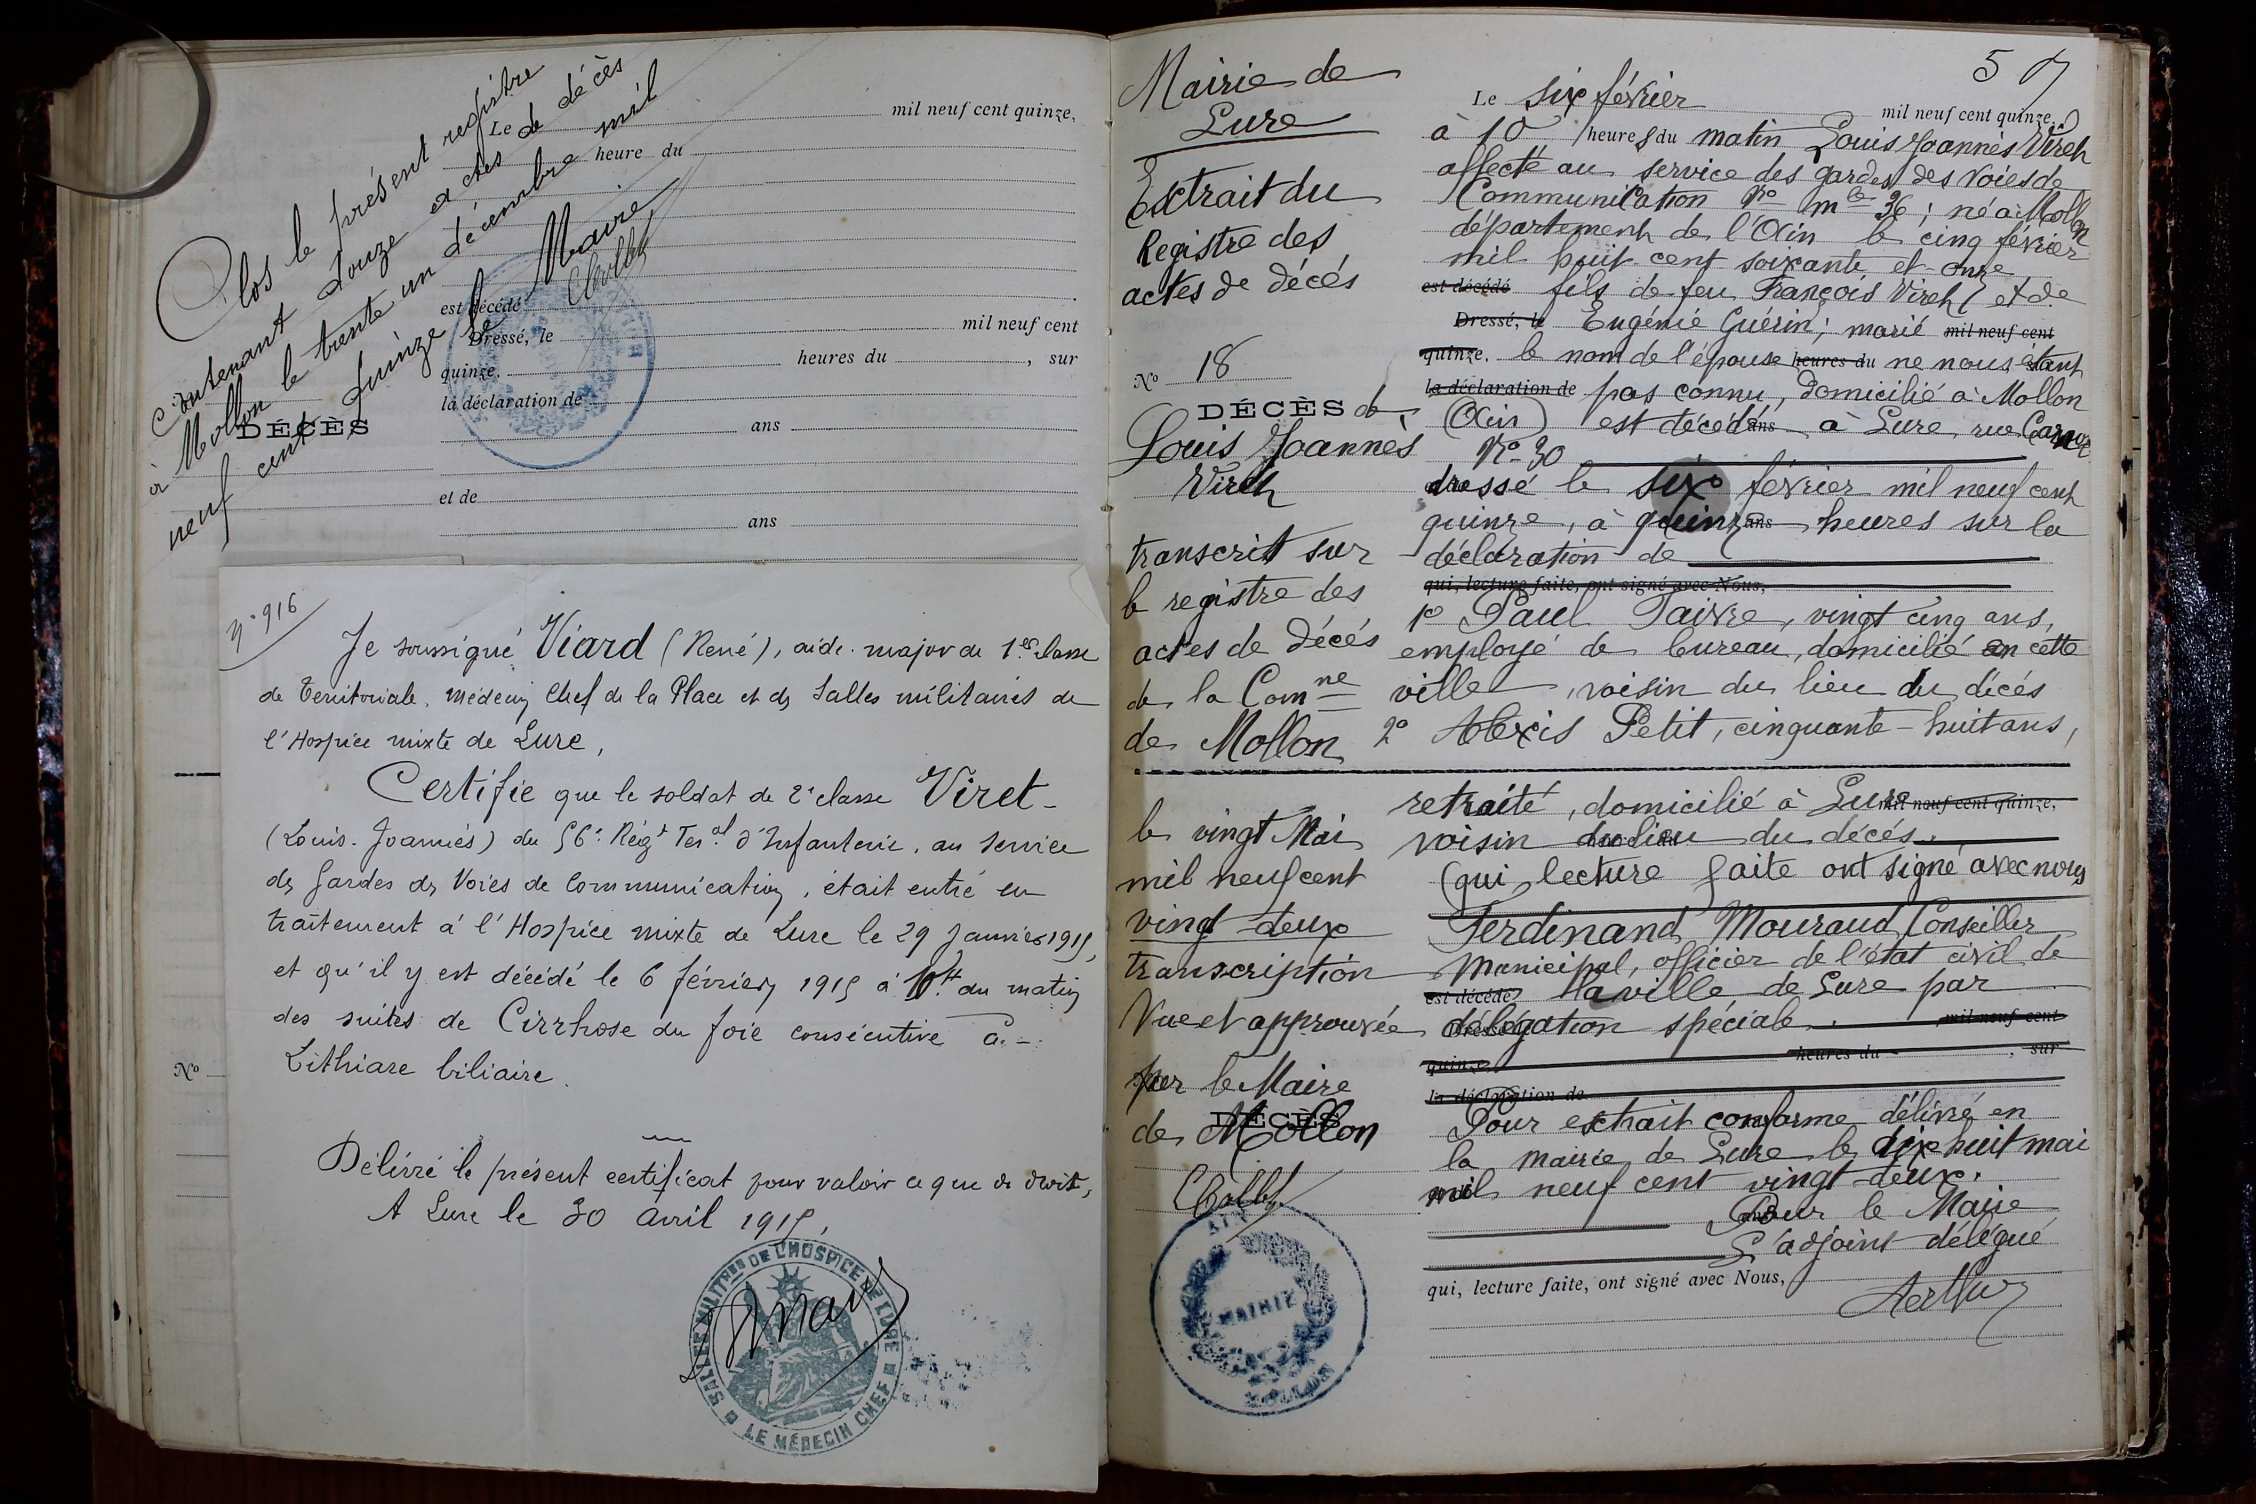 Clos le présent registre
contenant douze actes de décès
à Mollon le trente un décembre mil
neuf cent quinze Le Maire
Chollet
Le mil neuf cent quinze,
heure du
est décédé
Dressé, le mil neuf cent
quinze, heures du , sur
la déclaration de
DÉCÈS
ans
et de
ans
No
N° 916
Je soussigné Viard (René), aide-major de 1ere classe
de Territoriale, Médecin Chef de la Place et des Salles militaires de
l'Hospice mixte de Lure,
Certifie que le soldat de 2e classe Viret
(Louis-Joannès) du 56e Régt Teral d'Infanterie, au service
des Gardes des Voies de Communication, était entré en
traitement à l'Hospice mixte de Lure le 29 Janvier 1915,
et qu'il y est décédé le 6 février 1915 à 10H du matin
des suites de Cirrhose du foie consécutive à
Lithiase biliaire.
Délivré le présent certificat pour valoir ce que de droit,
A Lure le 30 Avril 1915,
SALLES MILITRES DE L'HOSPICE DE LURE
LE MÉDECIN CHEF
Mairie de
Lure
Extrait du
Registre des
actes de décés
No 18
DÉCÈS de
Louis Joannès
Viret
transcrit sur
le registre des
actes de décés
de la Comne
de Mollon
le vingt Mai
mil neuf cent
vingt-deux
transcription
Vue et approuvée
par le Maire
DÉCÈS
de Mollon
Chollet
AIN
MAIRIE
MOLLON
5
Le six février mil neuf cent quinze,
à 10 heures du matin Louis Joannès Viret
affecté au service des gardes des voies de
Communication No mle 36; né à Mollon
département de l'Ain le cinq février
mil huit cent soixante et onze
est décédé fils de feu François Viret et de
Dressé, le Eugénie Guérin; marié mil neuf cent
quinze, le nom de l'épouse heures du ne nous étant
la déclaration de pas connu, domicilié à Mollon
(Ain) est décédé ans à Lure rue Carnot
No 30
dressé le six février mil neuf cent
quinze, à quinze ans heures sur la
déclaration de
qui, lecture faite, ont signé avec Nous,
1o Paul Faivre, vingt cinq ans,
employé de bureau, domicilié en cette
ville, voisin du lieu du décés
2o Alexis Petit, cinquante-huit ans,
retraité, domicilié à Lure mil neuf cent quinze,
voisin du lieu du décés.
qui, lecture faite ont signé avec nous
Ferdinand Mouraud, Conseiller
Municipal, officier de l'état civil de
est décédé la ville de Lure par
délégation spéciale. mil neuf cent
quinze, heures du , sur
la déclaration de
Pour extrait conforme délivré en
la mairie de Lure le dix huit mai
mil neuf cent vingt-deux.
Pour le Maire
L'adjoint délégué
qui, lecture faite, ont signé avec Nous,